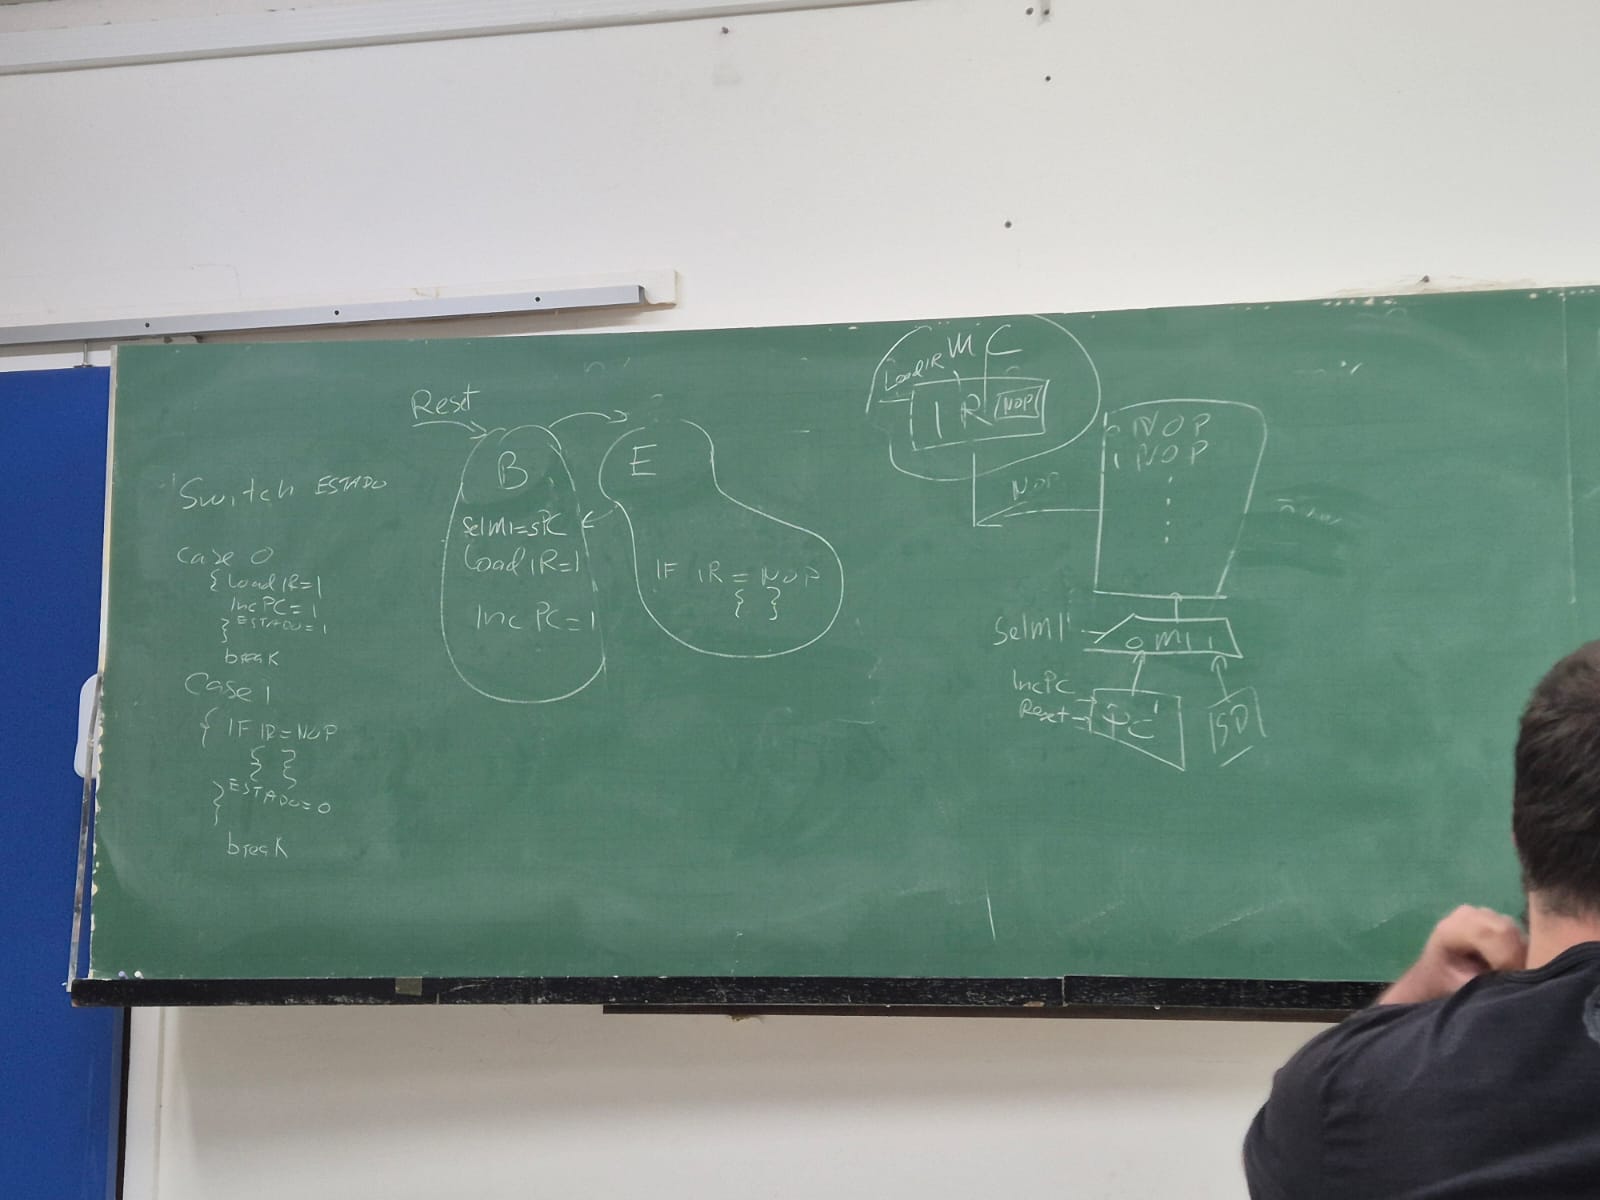 Switch ESTADO
case 0
{ Load IR=1
Inc PC=1
} ESTADO=1
break
Case 1
{ IF IR=NOP
{ }
} ESTADO=0
break
Reset
B
SelM1=sPC
Load IR=1
Inc PC=1
E
IF IR = NOP
{ }
M C
Load IR
IR NOP
NOP
0 NOP
1 NOP
SelM1
0 M1 1
IncPC
Reset
PC
SD